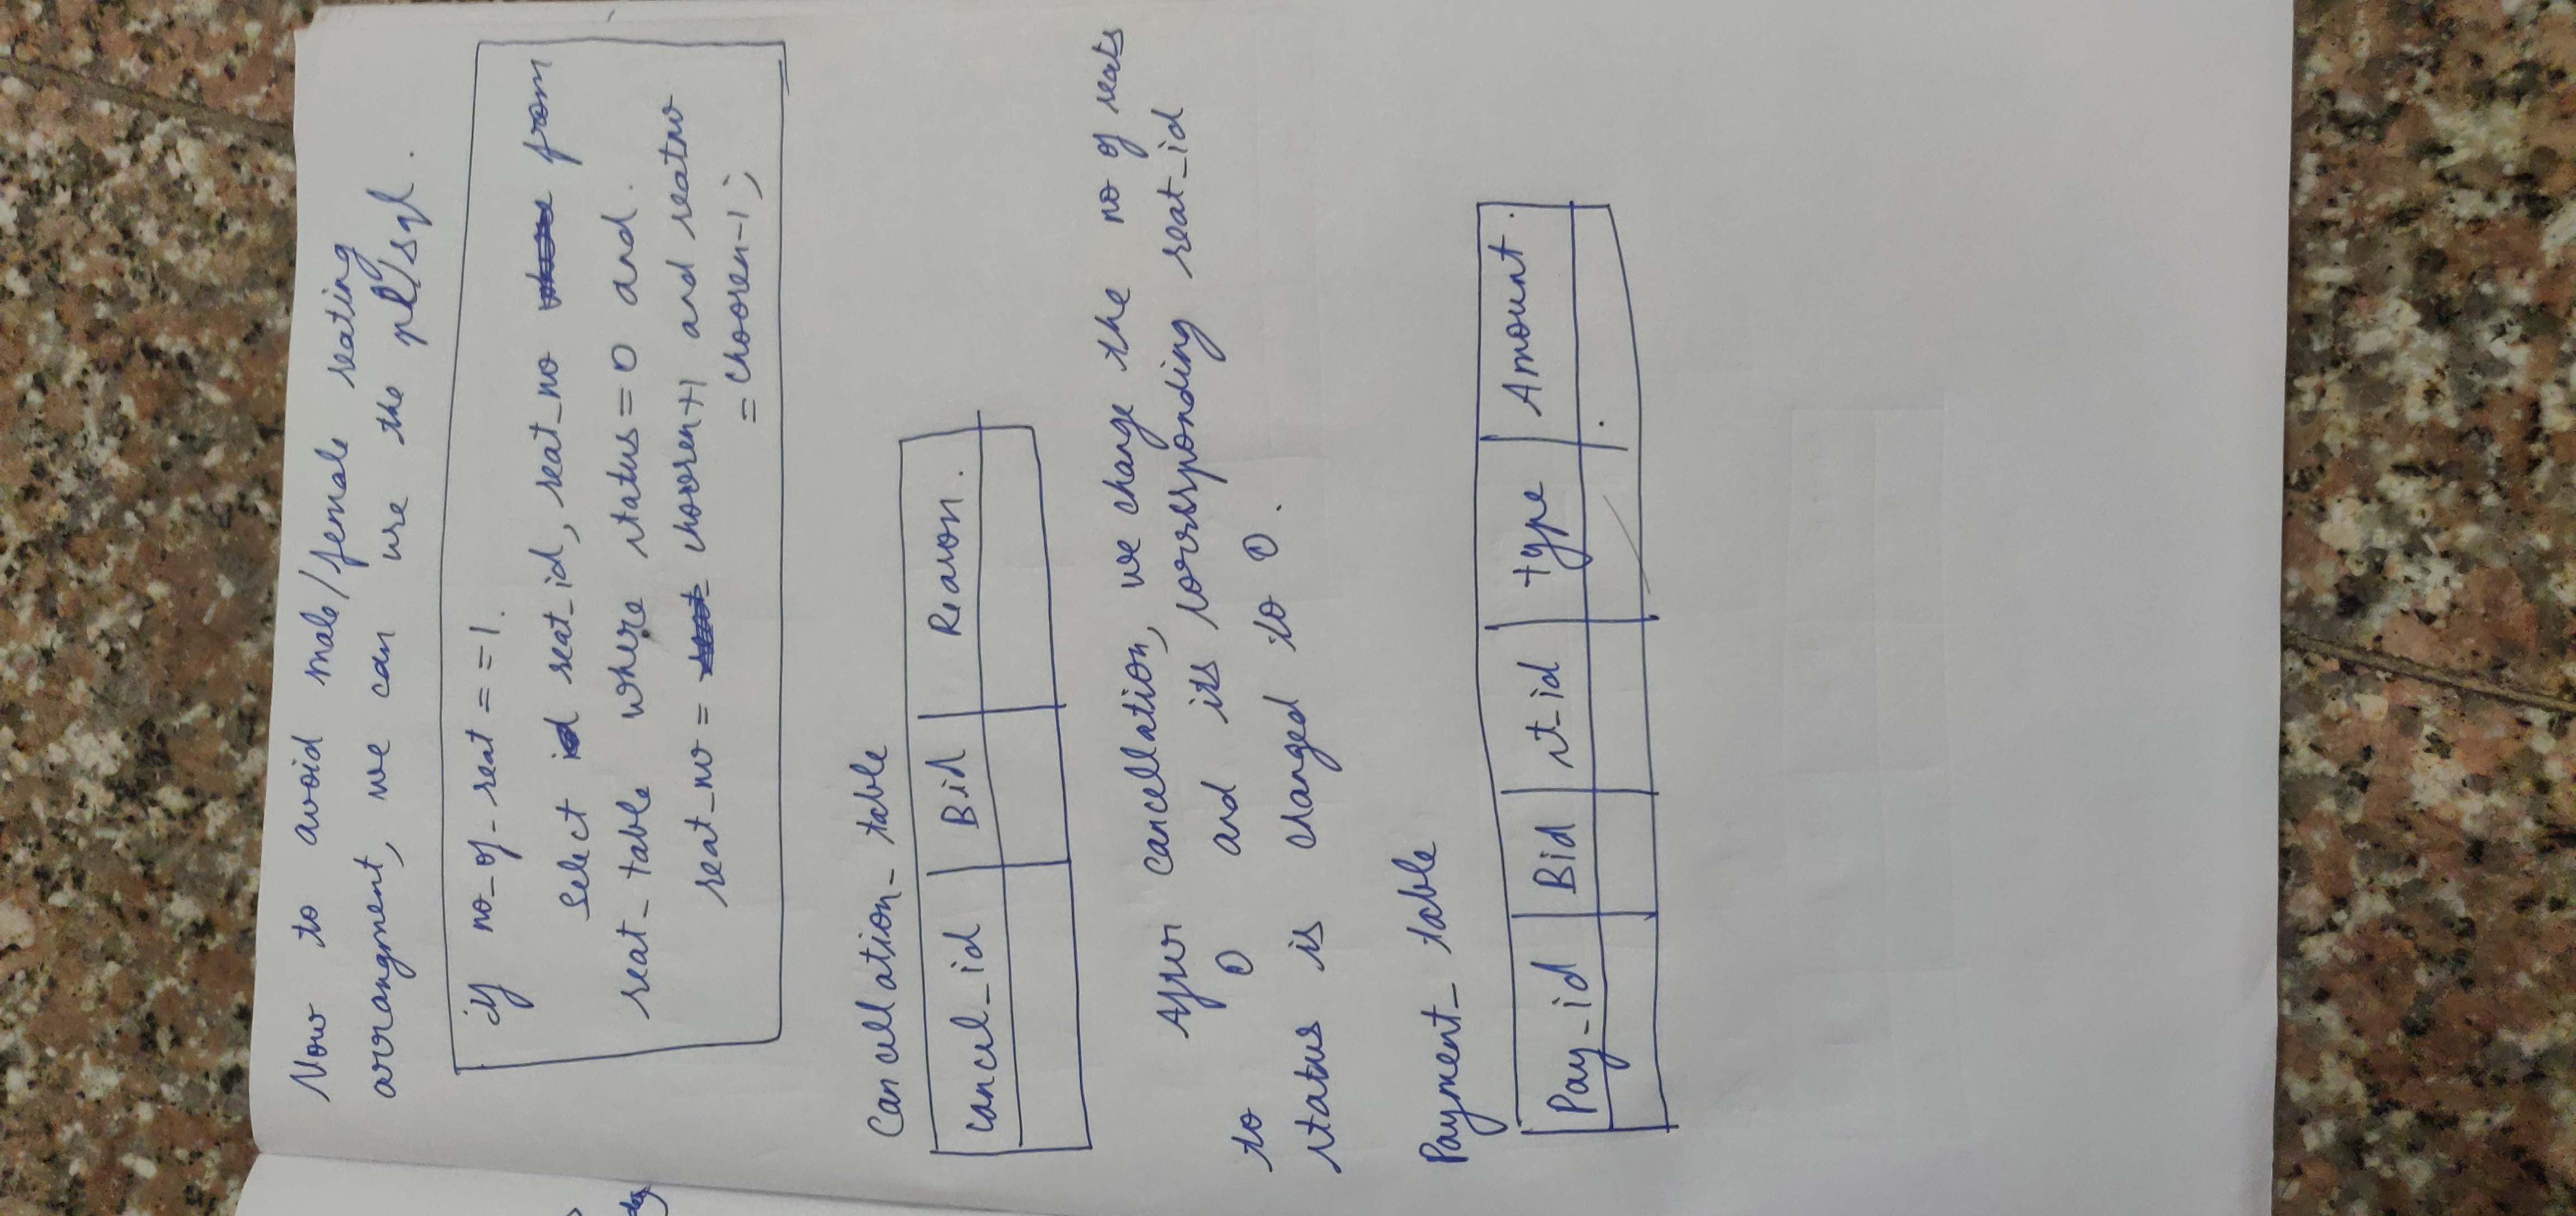 Now to avoid male/female seating
arrangment, we can use the pl/sql.
if no_of_seat = =1.
Select seat_id, seat_no from
seat_table where status=0 and.
seat_no = choosen+1 and seatno
=choosen-1;
Cancellation_table
cancel_id Bid Reason.
After cancellation, we change the no of seats
to 0 and its corresponding seat_id
status is changed to 0.
Payment_table
Pay_id Bid st_id type Amount.